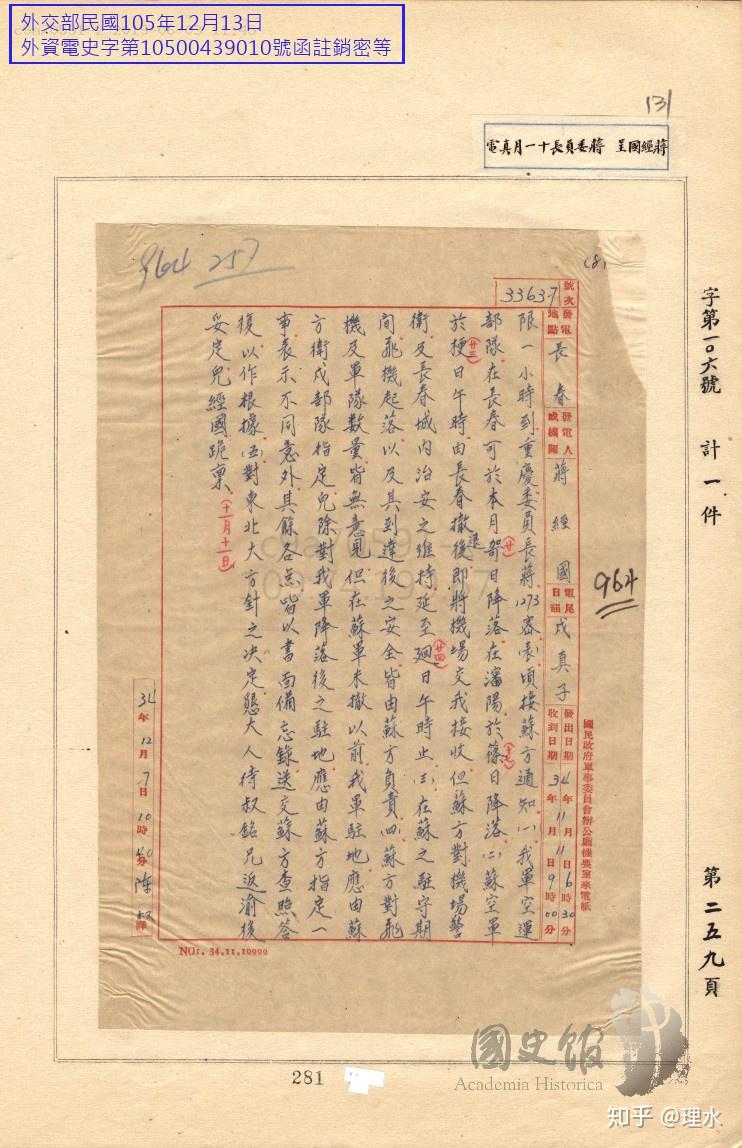 外交部民國105年12月13日
外資電史字第10500439010號函註銷密等
131
蔣經國呈 蔣委員長十一月真電
字第一〇六號 計一件
第二五九頁
964 257
(8)
號次 33637
發電地點 長春 發電人或機關 蔣經國 電尾日韻 戌真子 發出日期 34年11月11日6時30分 收到日期 34年11月11日9時00分
國民政府軍事委員會辦公廳機要室來電紙
964
限一小時到重慶委員長蔣1273密表頃接蘇方通知㈠我軍空運
部隊在長春可於本月哿(廿)日降落在瀋陽於篠(十七)日降落㈡蘇空軍
於梗(廿三)日午時由長春撤退後即將機場交我接收但蘇方對機場警
衛及長春城內治安之維持延至迴(廿四)日午時止㈢在蘇之駐守期
間飛機起落以及其到達後之安全皆由蘇方負責㈣蘇方對飛
機及軍隊數量皆無意見但在蘇軍未撤以前我軍駐地應由蘇
方衛戍部隊指定兒除對我軍降落後之駐地應由蘇方指定一
事表示不同意外其餘各点皆以書面備忘錄送交蘇方查照答
復以作根據㈤對東北大方針之決定懇大人待叔銘兄返渝後
妥定兒經國跪稟(十一月十一日)
34年12月7日10時40分陳 譯
NO1. 34.11.10000
281
國史館
Academia Historica
知乎 @理水